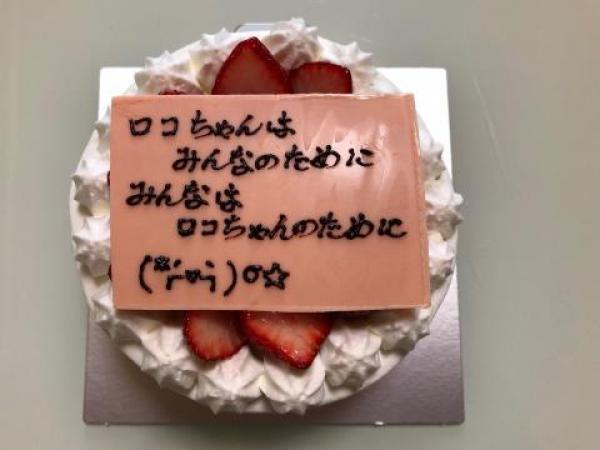 ロコちゃんは
みんなのために
みんなは
ロコちゃんのために